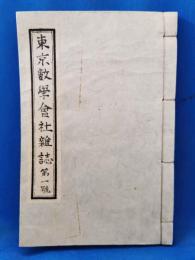 東京數學會社雜誌 第一號